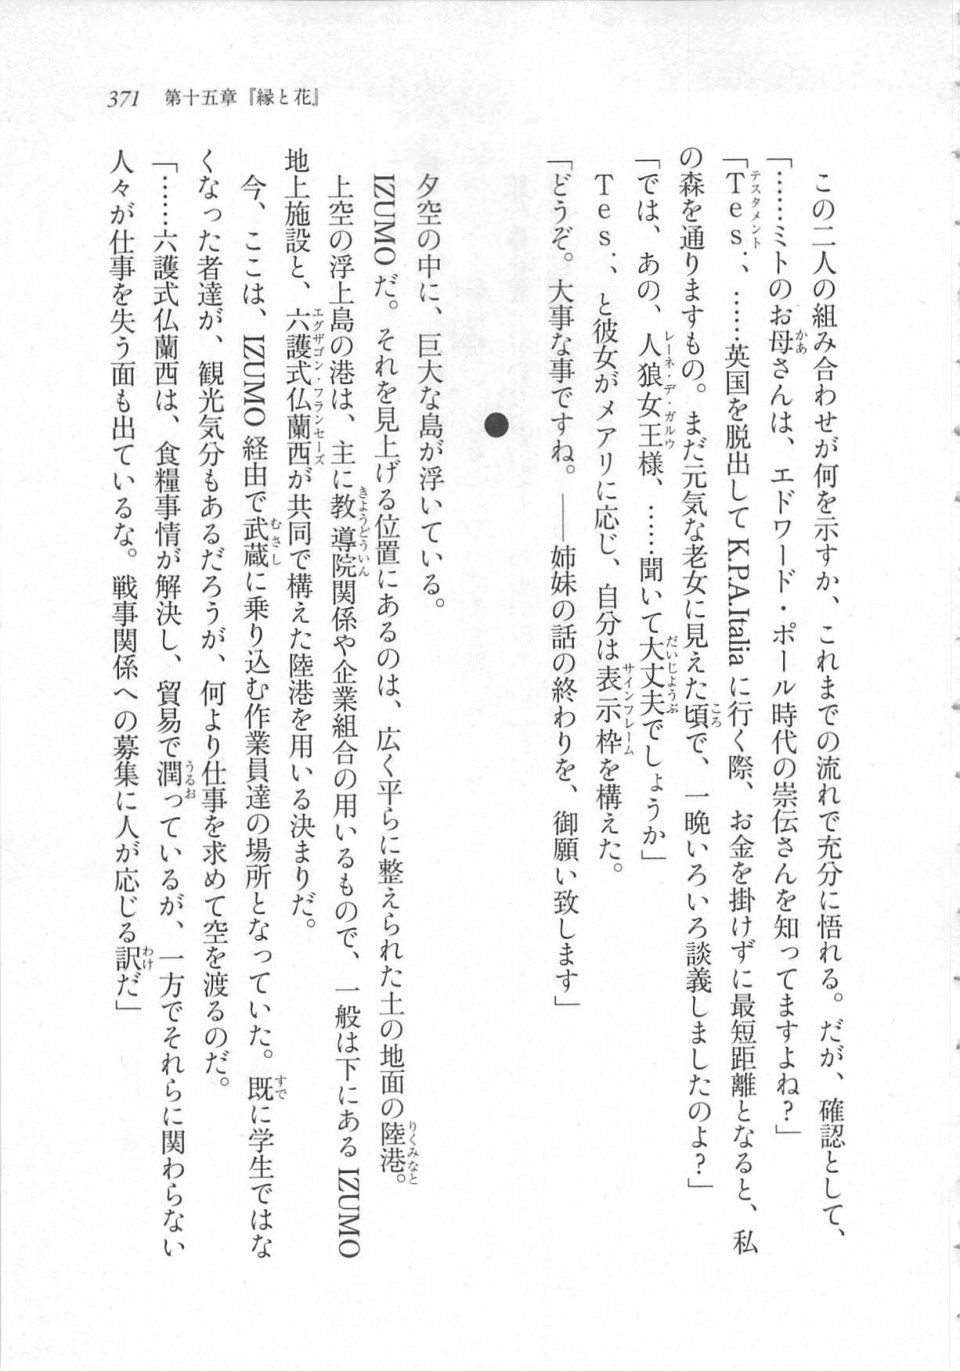 371 第十五章『縁と花』
この二人の組み合わせが何を示すか、これまでの流れで充分に悟れる。だが、確認として、
「……ミトのお母さんは、エドワード・ポール時代の崇伝さんを知ってますよね？」
「Ｔｅｓ．、……英国を脱出して K.P.A.Italia に行く際、お金を掛けずに最短距離となると、私
の森を通りますもの。まだ元気な老女に見えた頃で、一晩いろいろ談義しましたのよ？」
「では、あの、人狼女王様、……聞いて大丈夫でしょうか」
Ｔｅｓ．、と彼女がメアリに応じ、自分は表示枠を構えた。
「どうぞ。大事な事ですね。――姉妹の話の終わりを、御願い致します」
●
夕空の中に、巨大な島が浮いている。
IZUMO だ。それを見上げる位置にあるのは、広く平らに整えられた土の地面の陸港。
上空の浮上島の港は、主に教導院関係や企業組合の用いるもので、一般は下にある IZUMO
地上施設と、六護式仏蘭西が共同で構えた陸港を用いる決まりだ。
今、ここは、IZUMO 経由で武蔵に乗り込む作業員達の場所となっていた。既に学生ではな
くなった者達が、観光気分もあるだろうが、何より仕事を求めて空を渡るのだ。
「……六護式仏蘭西は、食糧事情が解決し、貿易で潤っているが、一方でそれらに関わらない
人々が仕事を失う面も出ているな。戦事関係への募集に人が応じる訳だ」